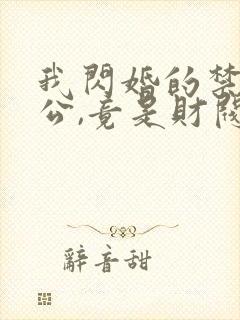 我閃婚的禁
公,竟是財閥
辭音甜